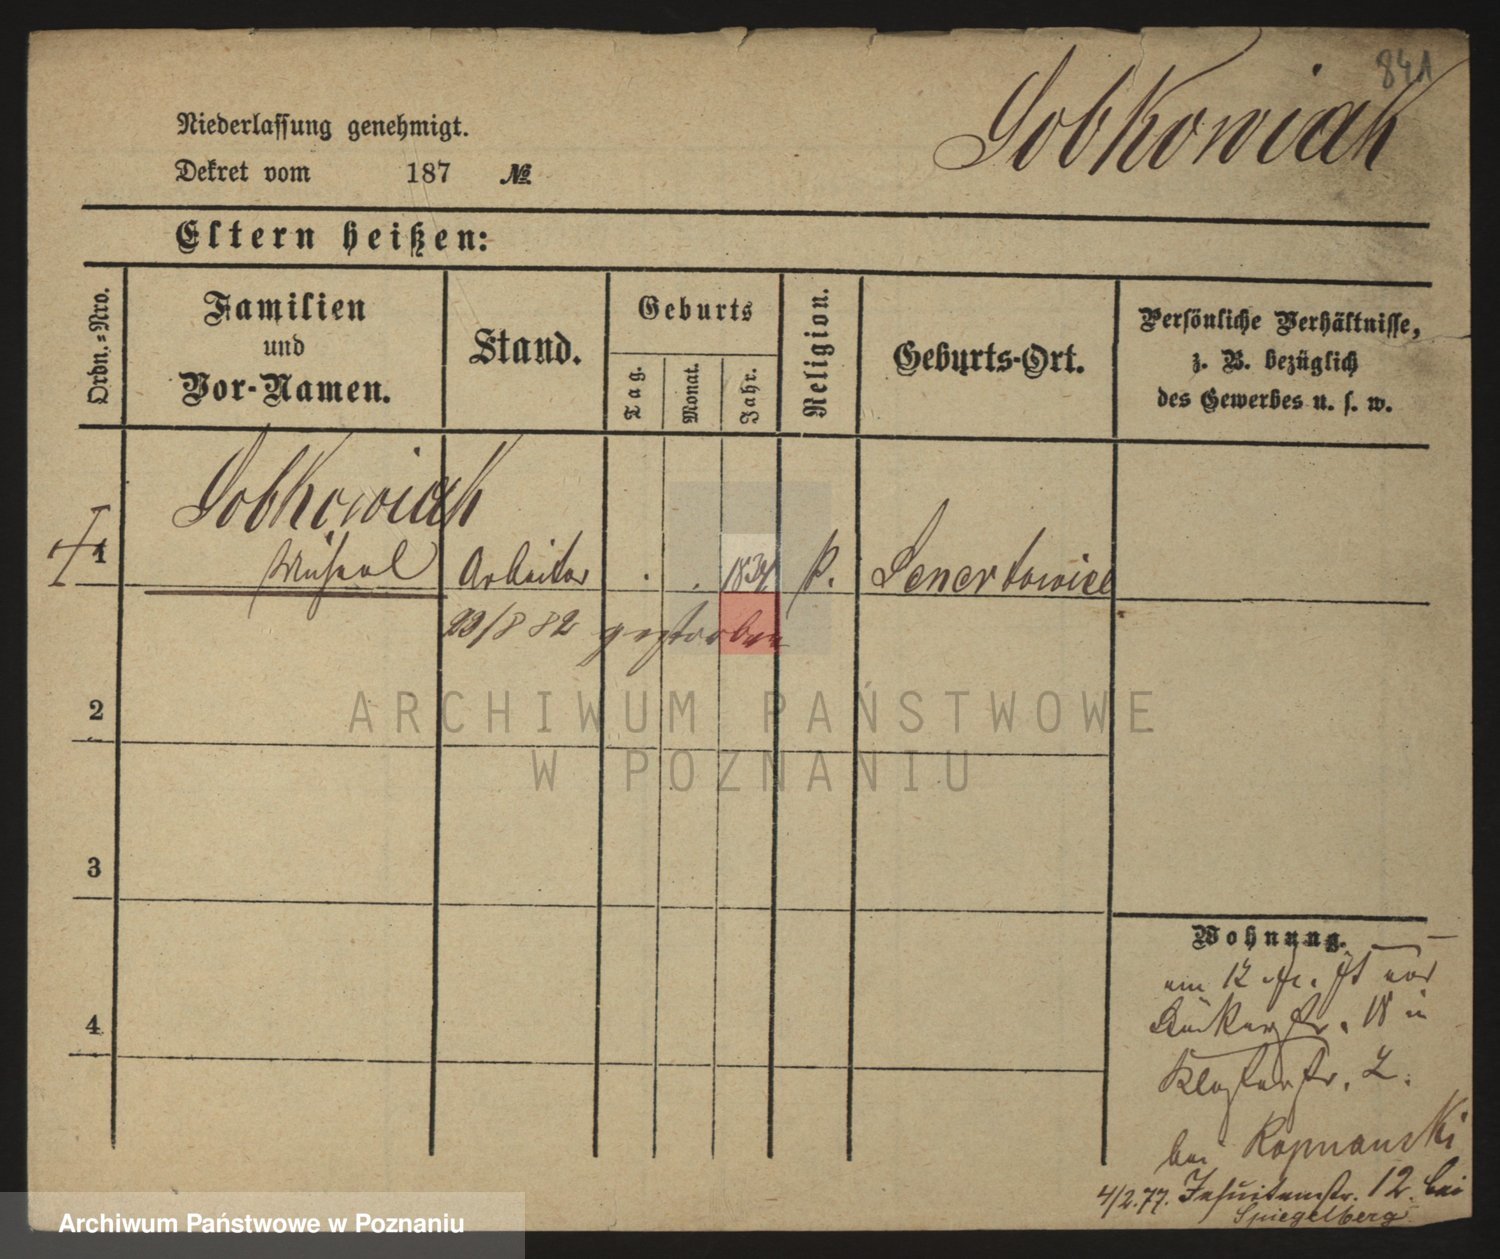 841
Sobkowiak
Niederlassung genehmigt.
Dekret vom 187 №
Eltern heißen:
Ordn.-Nro.
Familien
und
Vor-Namen.
Stand.
Geburts
Tag.
Monat.
Jahr.
Religion.
Geburts-Ort.
Persönliche Verhältnisse,
z. B. bezüglich
des Gewerbes u. s. w.
Sobkowiak
1 Michael Arbeiter 1834 k. Lenertowice
23/8 82 gestorben
2
3
4
Wohnung.
am 12
18 in
Klosterstr. 2.
bei Kopnanski
4/2.77. Jesuitenstr. 12. bei
Spiegelberg
ARCHIWUM PAŃSTWOWE
W POZNANIU
Archiwum Państwowe w Poznaniu